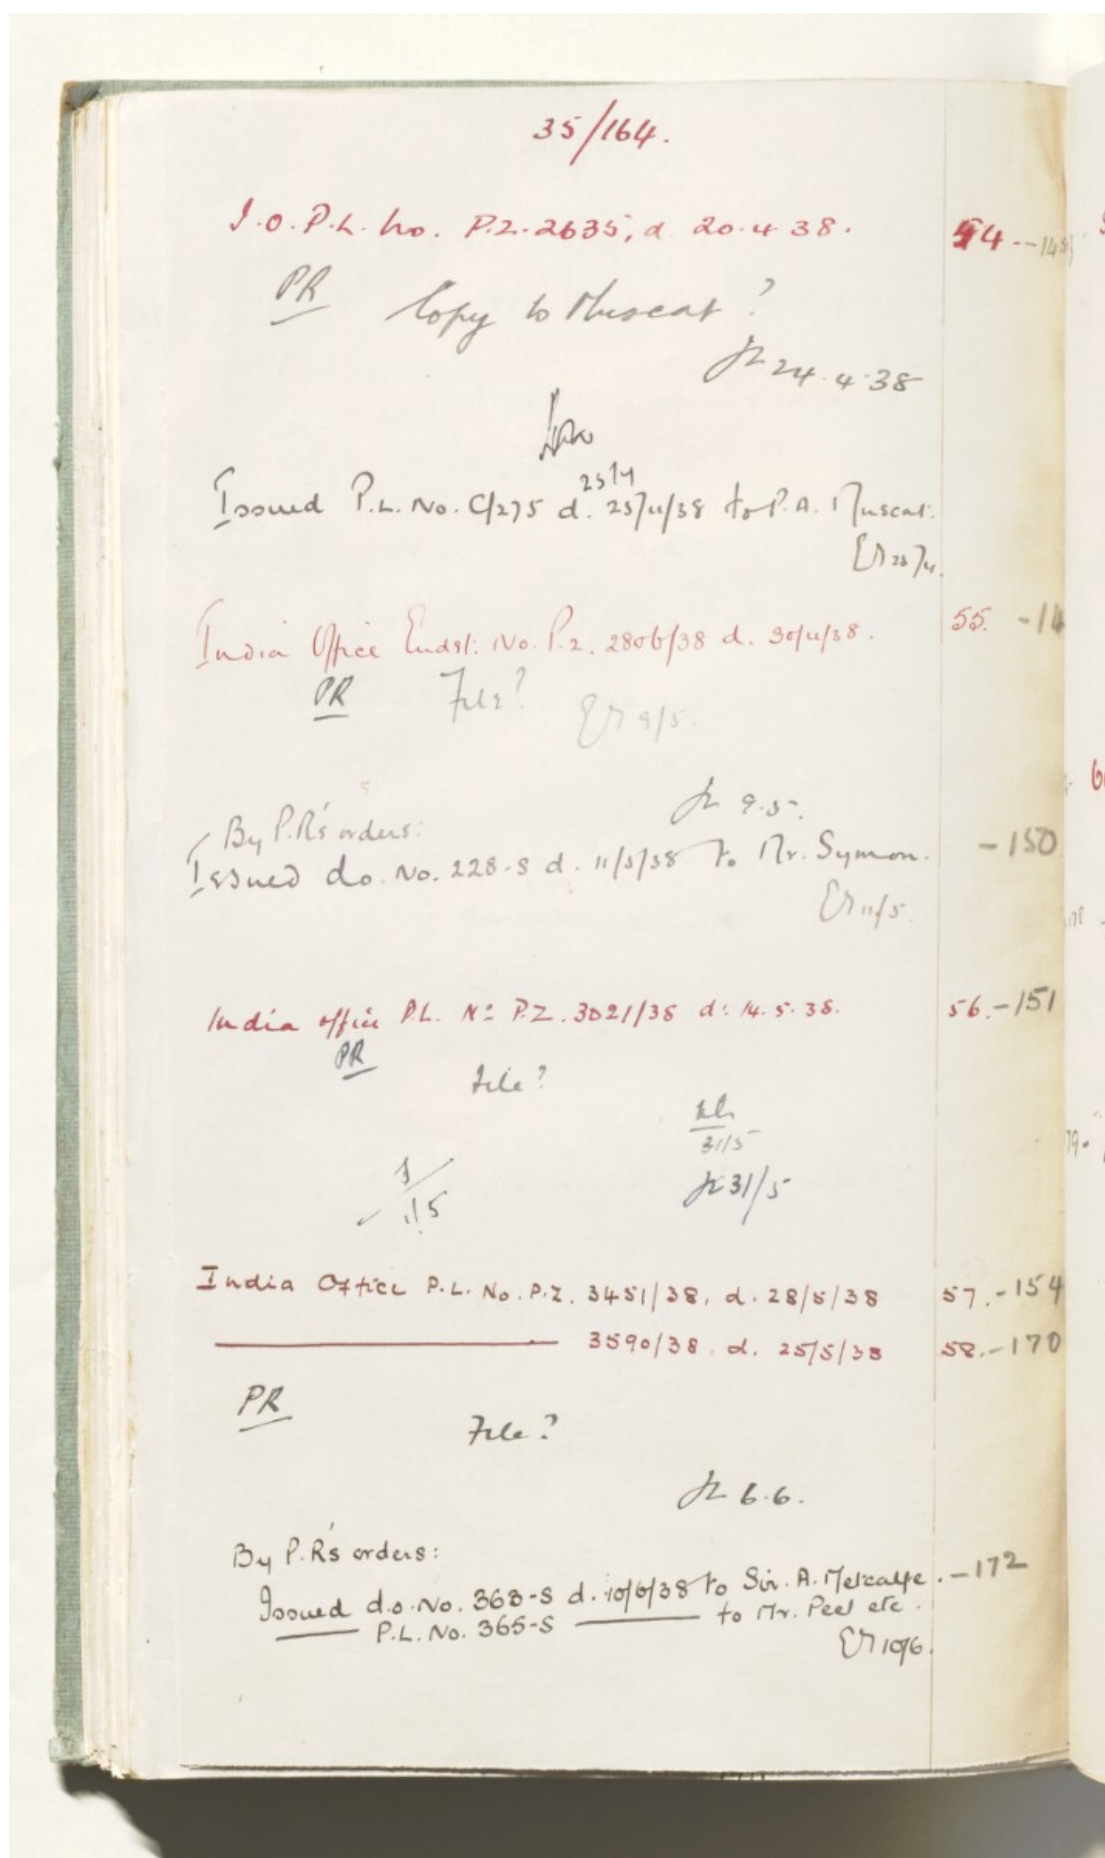 35/164.
I.O.P.L. No. P.Z. 2635, d. 20.4.38. 54
PR Copy to Muscat?
24.4.38
25/4
Issued P.L. No. C/275 d. 25/4/38 to P.A. Muscat.
India Office Endst: No. P.Z. 2806/38 d. 30/4/38. 55.
PR File?
9/5.
9.5.
By P.R's orders:
Issued do. No. 228-S d. 11/5/38 to Mr. Symon. -150
11/5.
India office P.L. No P.Z. 3021/38 d: 14.5.38. 56.-151
PR
File?
31/5
31/5
India Office P.L. No. P.Z. 3451/38, d. 28/5/38 57.-154
3590/38. d. 25/5/38 58.-170
PR
File?
6.6.
By P.R's orders:
Issued d.o. No. 363-S d. 10/6/38 to Sir. A. Metcalfe. -172
P.L. No. 365-S to Mr. Peel etc.
10/6.